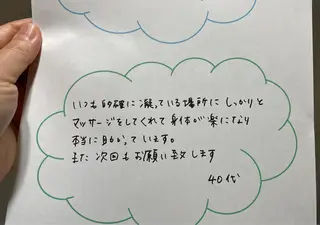 いつも的確に凝っている場所に しっかりと
マッサージをしてくれて身体が楽になり
本当に助かっています。
また次回もお願い致します
40代